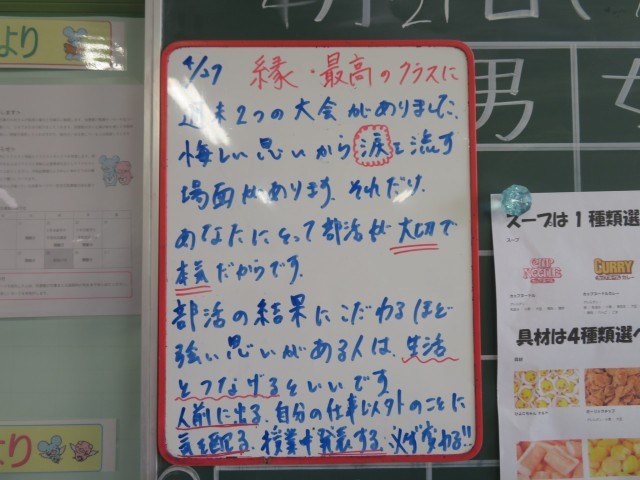 より
4/27 縁・最高のクラスに
週末2つの大会がありました。
悔しい思いから涙を流す
場面があります。それだけ、
あなたにとって部活が大切で
本気だからです。
部活の結果にこだわるほど
強い思いがある人は、生活
とつなげるといいです。
人前に出る、自分の仕事以外のことに
気を配る、授業中発表する、必ず変わる!!
より
4月27日(
男
女
スープは1種類選
スープ
CUP NOODLE
CURRY
具材は4種類選べ
具材